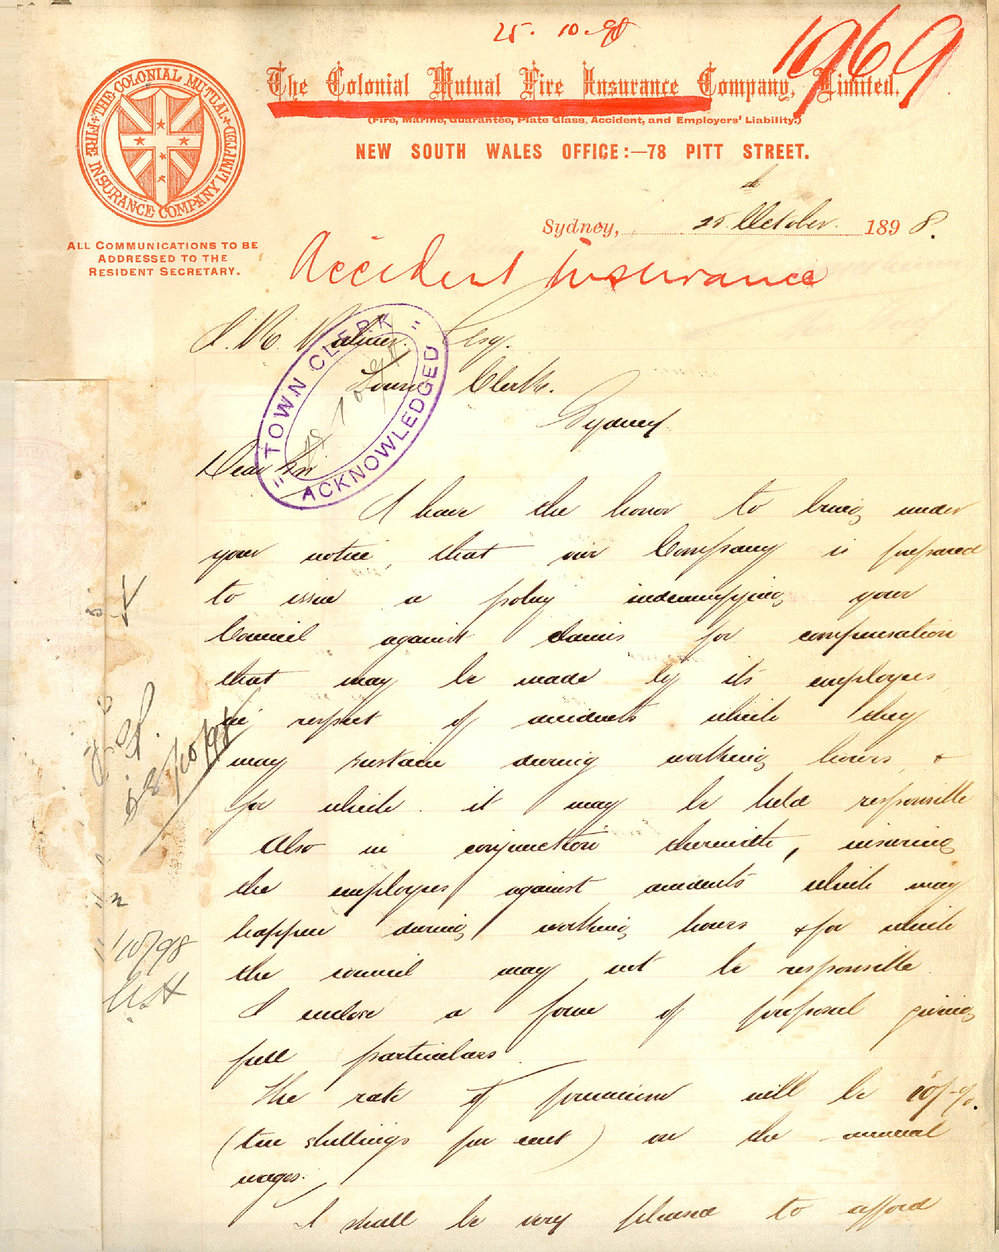 25.10.98
1969
THE COLONIAL MUTUAL FIRE INSURANCE COMPANY LIMITED
The Colonial Mutual Fire Insurance Company, Limited.
(Fire, Marine, Guarantee, Plate Glass, Accident, and Employers' Liability.)
NEW SOUTH WALES OFFICE:—78 PITT STREET.
ALL COMMUNICATIONS TO BE
ADDRESSED TO THE
RESIDENT SECRETARY.
Sydney, 25th October 1898.
Accident Insurance
Esq.
Town Clerk.
Sydney.
"TOWN CLERK"
ACKNOWLEDGED
Dear Sir
I have the honor to bring under
your notice that our Company is prepared
to issue a policy indemnifying your
Council against claims for compensation
that may be made by its employees
in respect of accidents which they
may sustain during working hours, &
for which it may be held responsible
Also in conjunction therewith, insuring
the employees against accidents which may
happen during working hours & for which
the council may not be responsible.
I enclose a form of proposal giving
full particulars.
The rate of premium will be 10/-%.
(ten shillings per cent) on the annual
wages.
I shall be very pleased to afford
28/10/98
10/98